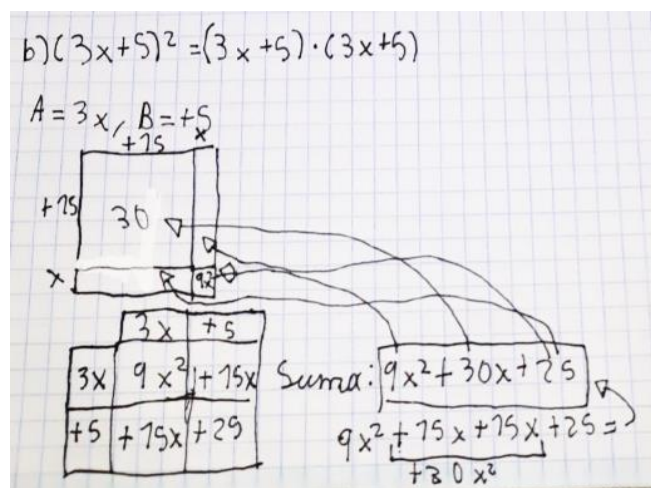 b) (3x+5)² = (3x+5)·(3x+5)
A = 3x, B = +5
+15 x
+15 30
x 9x²
3x +5
3x 9x² +15x
+5 +15x +25
Suma: 9x² + 30x + 25
9x² + 15x + 15x + 25 =
+30x²